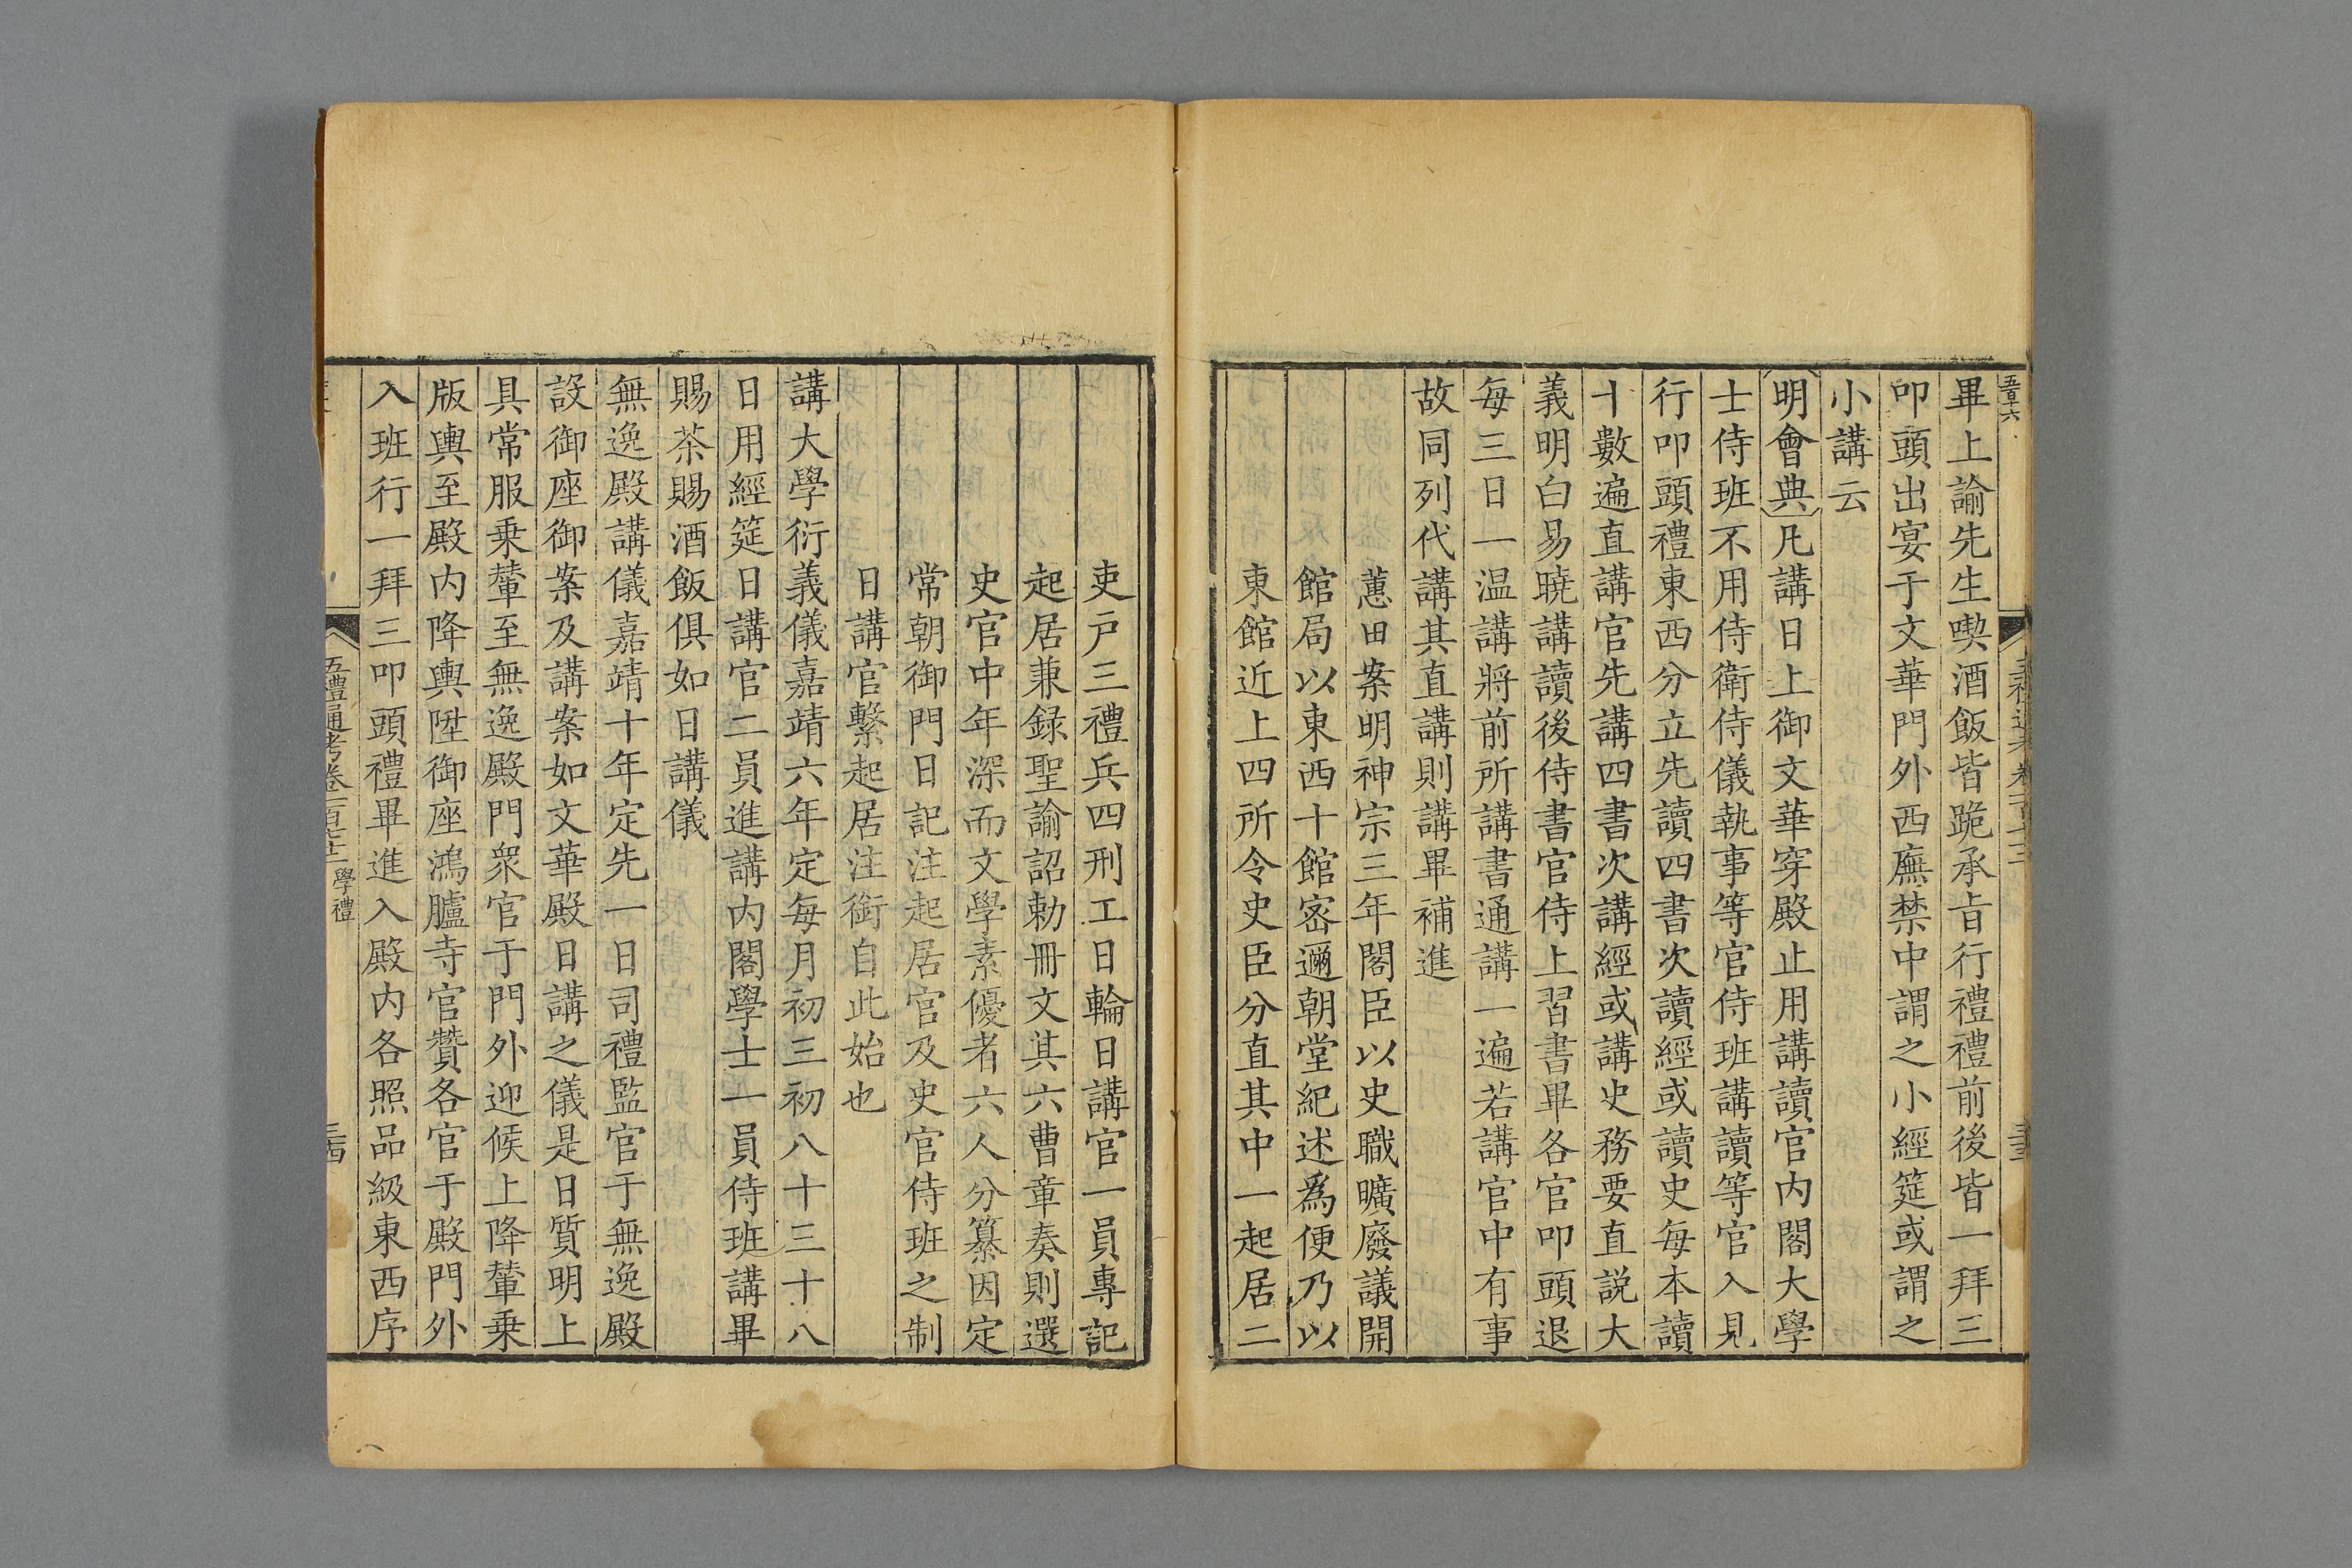 畢上諭先生喫酒飯皆跪承旨行禮禮前後皆一拜三
叩頭出宴于文華門外西廡禁中謂之小經筵或謂之
小講云
明會典凡講日上御文華穿殿止用講讀官内閣大學
士侍班不用侍衛侍儀執事等官侍班講讀等官入見
行叩頭禮東西分立先讀四書次讀經或讀史每本讀
十數遍直講官先講四書次講經或講史務要直説大
義明白易曉講讀後侍書官侍上習書畢各官叩頭退
每三日一温講將前所講書通講一遍若講官中有事
故同列代講其直講則講畢補進
蕙田案明神宗三年閣臣以史職曠廢議開
館局以東西十館密邇朝堂紀述爲便乃以
東館近上四所令史臣分直其中一起居二
吏戸三禮兵四刑工日輪日講官一員專記
起居兼録聖諭詔勅冊文其六曹章奏則選
史官中年深而文學素優者六人分纂因定
常朝御門日記注起居官及史官侍班之制
日講官繫起居注銜自此始也
講大學衍義儀嘉靖六年定每月初三初八十三十八
日用經筵日講官二員進講内閣學士一員侍班講畢
賜茶賜酒飯俱如日講儀
無逸殿講儀嘉靖十年定先一日司禮監官于無逸殿
設御座御案及講案如文華殿日講之儀是日質明上
具常服乗輦至無逸殿門衆官于門外迎候上降輦乗
版輿至殿内降輿陞御座鴻臚寺官贊各官于殿門外
入班行一拜三叩頭禮畢進入殿内各照品級東西序
五禮通考卷一百七十二 學禮